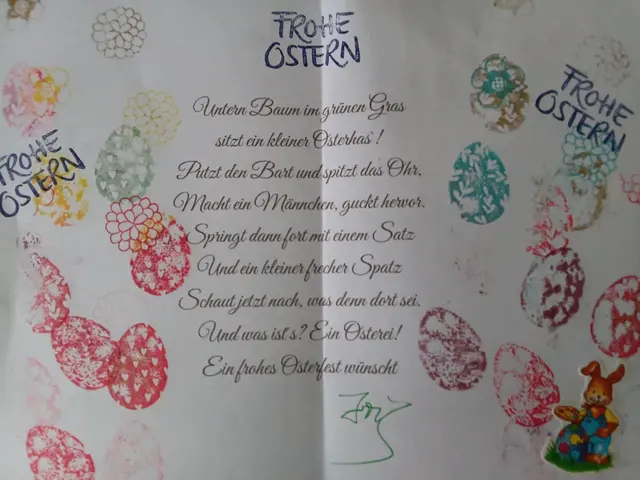 FROHE
OSTERN
FROHE
OSTERN
FROHE
OSTERN
Untern Baum im grünen Gras
sitzt ein kleiner Osterhas´!
Putzt den Bart und spitzt das Ohr,
Macht ein Männchen, guckt hervor.
Springt dann fort mit einem Satz
Und ein kleiner frecher Spatz
Schaut jetzt nach, was denn dort sei.
Und was ist´s? Ein Osterei!
Ein frohes Osterfest wünscht